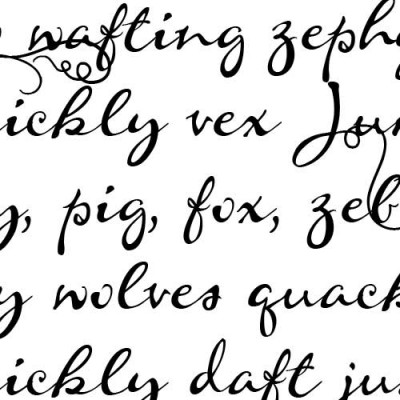 wafting zephy
ickly vex Jun
y, pig, fox, zeb
y wolves quack
ickly daft ju